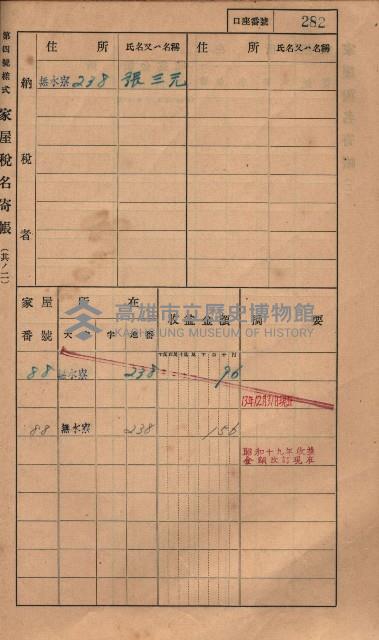 口座番號 282
第四號樣式 家屋稅名寄帳 (其ノ二)
住所 氏名又ハ名稱 住所 氏名又ハ名稱
納稅者
無水寮 238 張三元
家屋番號 所在 收益金額 摘要
大字 地番
高雄市立歷史博物館
KAOHSIUNG MUSEUM OF HISTORY
88 無水寮 238 96
13年12月31日現在
88 無水寮 238 156
昭和十九年收益
金額改訂現在